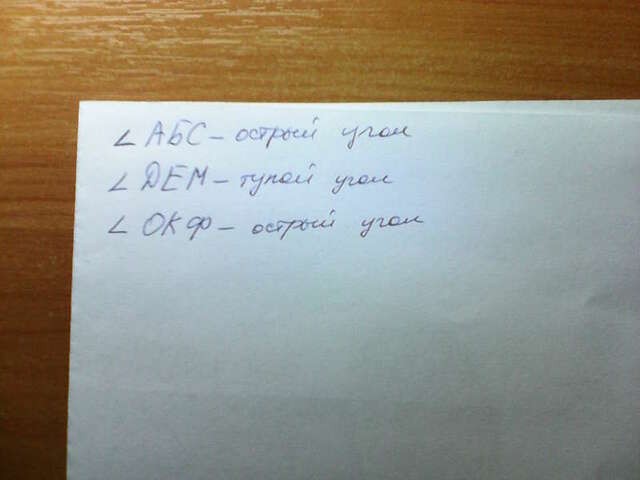 ∠ АБС – острый угол
∠ DЕМ – тупой угол
∠ ОКФ – острый угол